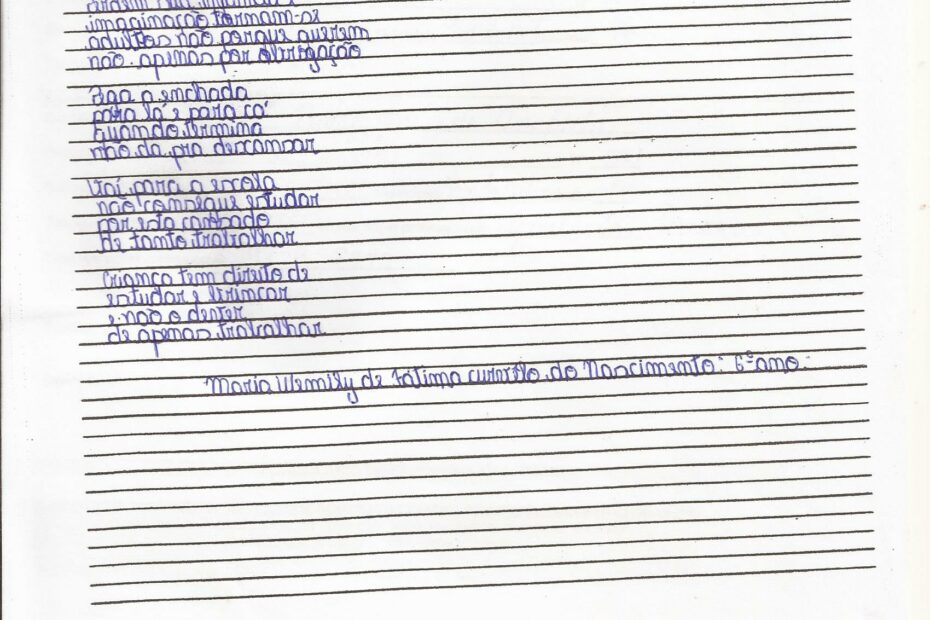 imaginação tornam-se
adultos não porque querem
não apenas por obrigação
Pega a enchada
para lá e para cá
quando termina
não da pra descansar
Vai para a escola
não consegue estudar
por esta cansado
de tanto trabalhar
Criança tem direito de
estudar e brincar
e não o dever
de apenas trabalhar
Maria de Fátima do Nascimento: 6º ano.